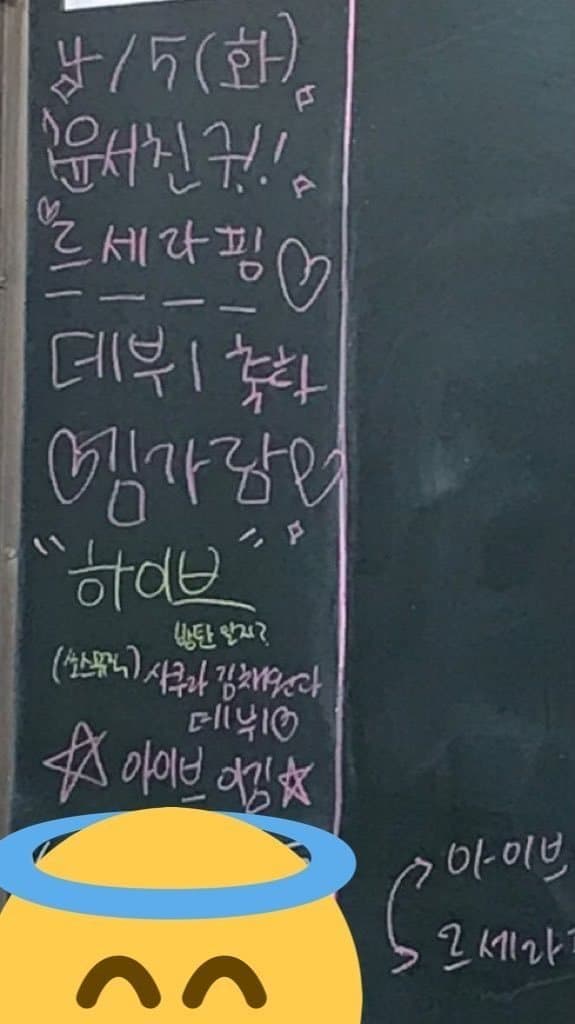 4/5(화)
윤서친구!!
르세라핌♡
데뷔 축하
♡김가람♡
"하이브"
방탄 알지?
(쏘스뮤직) 사쿠라 김채원다
데뷔♡
☆아이브 이김☆
아이브
르세라